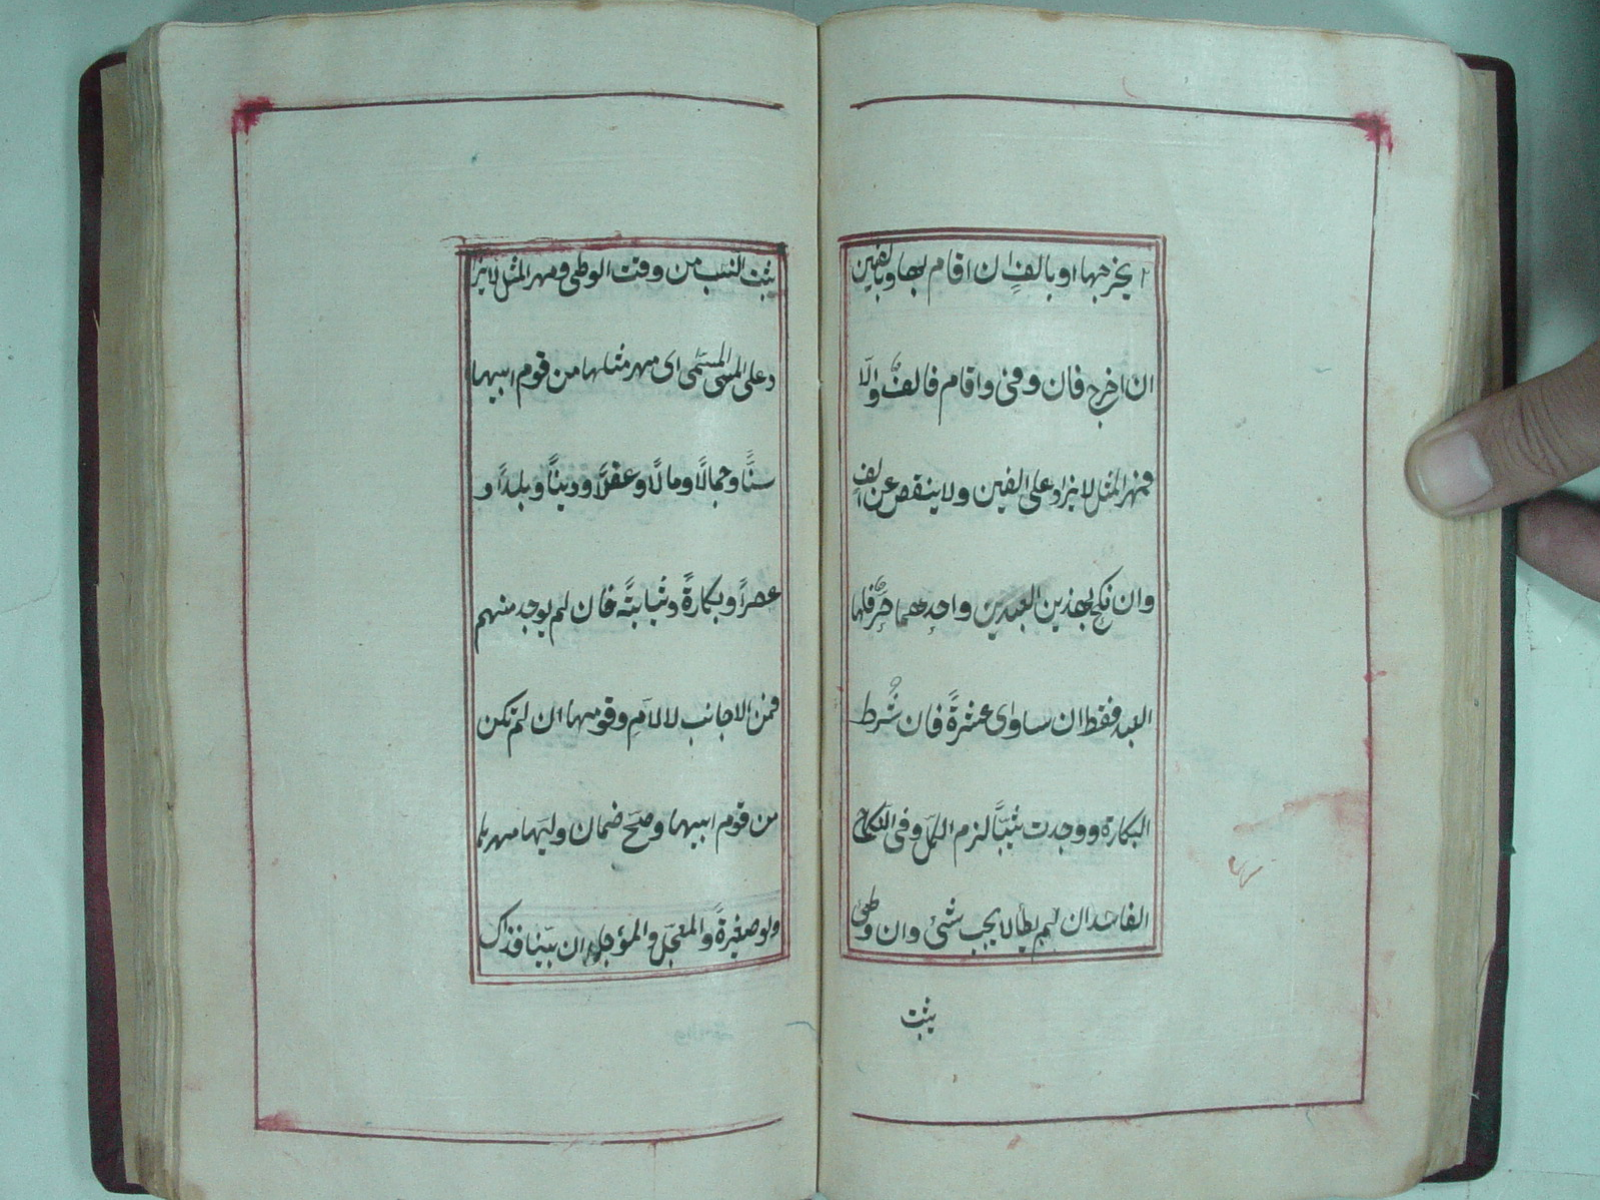 لا يخرجها او بالف ان اقام بها وبالفين
ان اخرج فان وفى واقام فالفٌ والّا
فمهر المثل لا يزاد على الفين ولا ينقص عن الفٍ
وان نكح بهذين العبدين واحدهما حرٌّ فلها
العبد فقط ان ساوى عشرةً فان شُرط
البكارة ووجدت ثيّبًا لزم الكلّ وفى النكاح
الفاسد ان لم يطأ لا يجب شئ وان وطى
يثبت
يثبت النسب من وقت الوطى ومهر المثل لا يزا
د على المسمى المسمّى اى مهر مثلها من قوم ابيها
سنًّا وجمالًا ومالًا وعقلًا ودينًا وبلدًا و
عصرًا وبكارةً وثيابةً فان لم يوجد منهم
فمن الاجانب لا الامّ وقومها ان لم تكن
من قوم ابيها وصحّ ضمان وليّها مهرها
ولو صغيرةً والمعجّل والمؤجل ان بيّنا فذاك